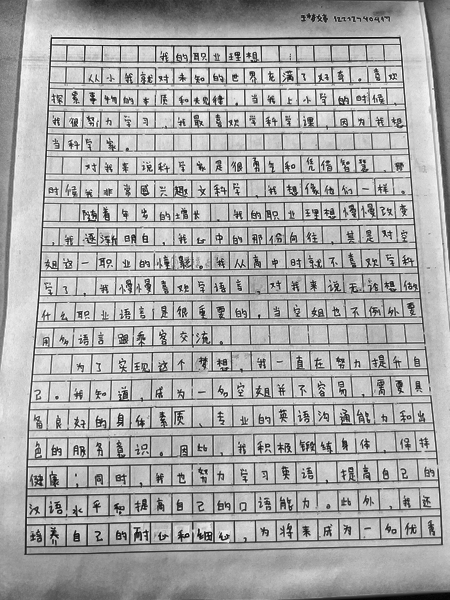 我的职业理想
从小我就对未知的世界充满了好奇。喜欢
探索事物的本质和规律。当我上小学的时候，
我很努力学习，我最喜欢学科学课，因为我想
当科学家。
对我来说科学家是很勇气和凭借智慧，那
时候我非常感兴趣文科学，我想像他们一样。
随着年出的增长，我的职业理想慢慢改变
，我逐渐明白，我心中的那份向往，其是对空
姐这一职业的憧憬。我从高中时就不喜欢学科
学了，我慢慢喜欢学语言，对我来说无论想做
什么职业语言是很重要的，当空姐也不例外要
用多语言跟乘客交流。
为了实现这个梦想，我一直在努力提升自
己。我知道，成为一名空姐并不容易，需要具
备良好的身体素质、专业的英语沟通能力和出
色的服务意识。因此，我积极锻炼身体，保持
健康；同时，我也努力学习英语，提高自己的
汉语水平和提高自己的口语能力。此外，我还
培养自己的耐心和细心，为将来成为一名优秀